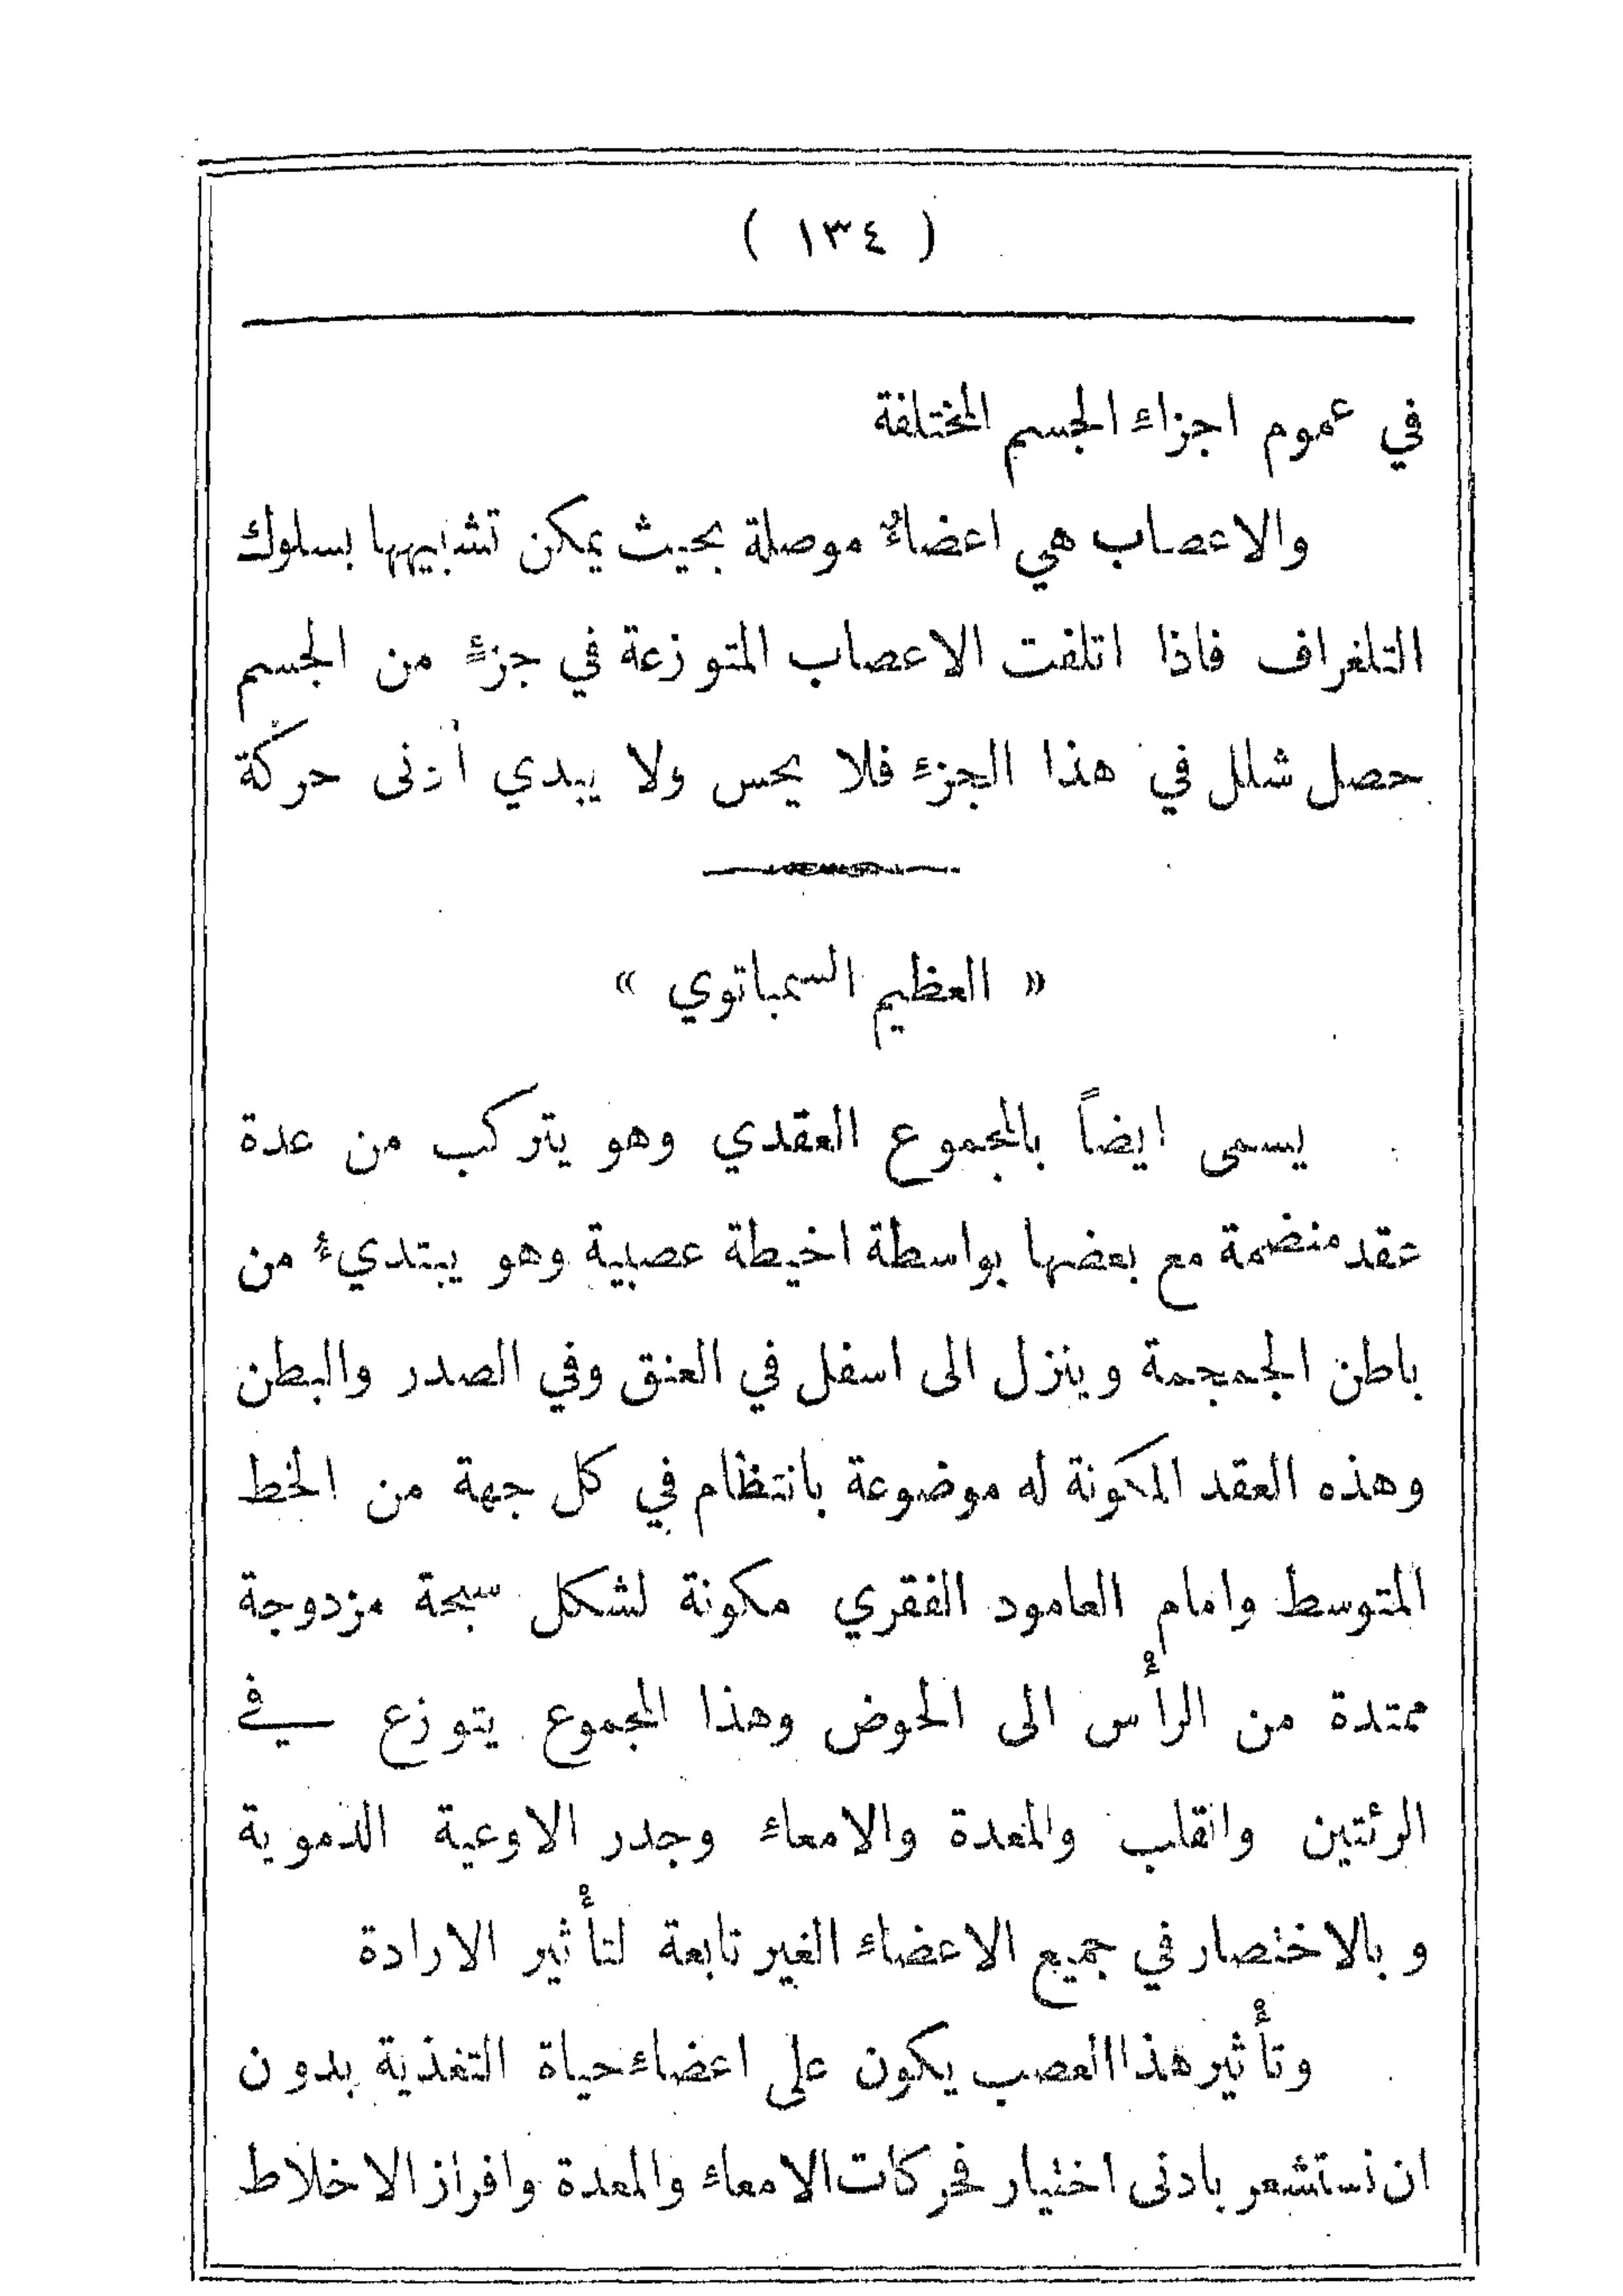 ( ١٣٤ )
في عموم اجزاء الجسم المختلفة
والاعصاب هي اعضاءٌ موصلة بحيث يمكن تشبيهها بسلوك
التلغراف فاذا اتلفت الاعصاب المتوزعة في جزءٍ من الجسم
حصل شلل في هذا الجزء فلا يحس ولا يبدي أدنى حركة
« العظيم السمباتوي »
يسمى ايضاً بالمجموع العقدي وهو يتركب من عدة
عقد منضمة مع بعضها بواسطة اخيطة عصبية وهو يبتديءُ من
باطن الجمجمة وينزل الى اسفل في العنق وفي الصدر والبطن
وهذه العقد المكونة له موضوعة بانتظام في كل جهة من الخط
المتوسط وامام العامود الفقري مكونة لشكل سبحة مزدوجة
ممتدة من الرأْس الى الحوض وهذا المجموع يتوزع في
الرئتين والقلب والمعدة والامعاء وجدر الاوعية الدموية
وبالاختصار في جميع الاعضاء الغير تابعة لتأْثير الارادة
وتأْثير هذا العصب يكون على اعضاء حياة التغذية بدون
ان نستشعر بادنى اختيار فحركات الامعاء والمعدة وافراز الاخلاط